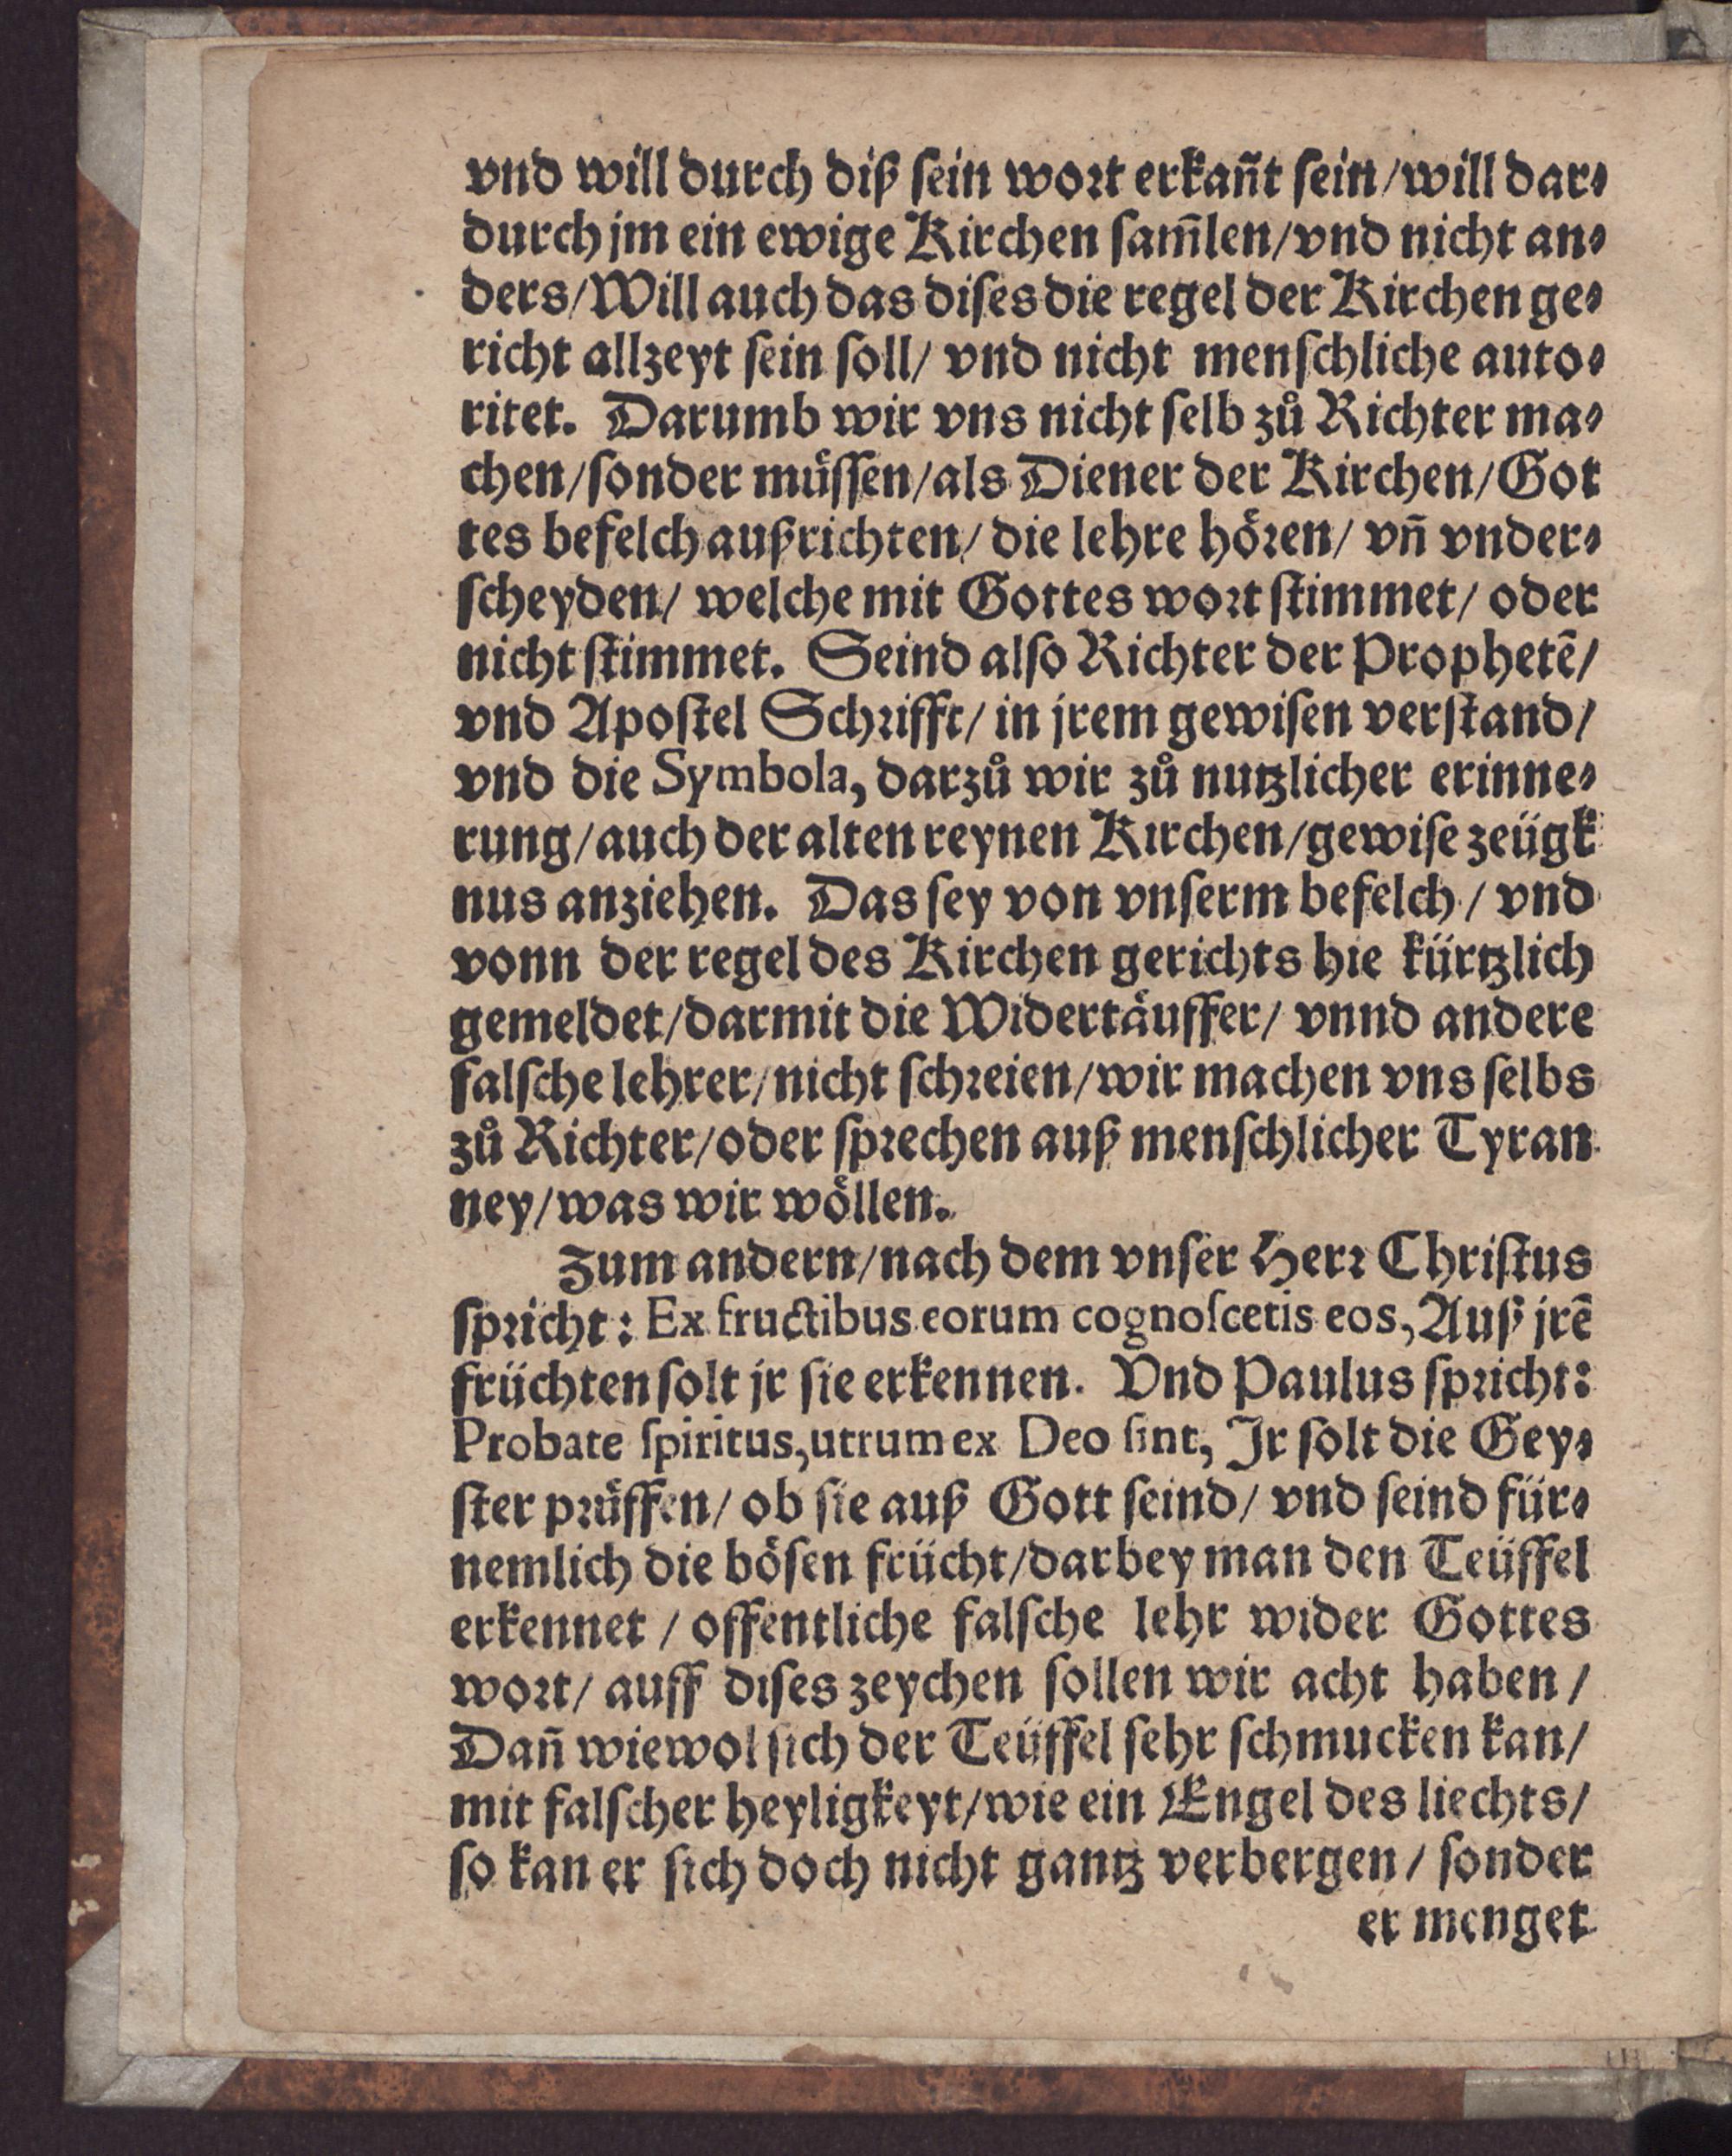 vnd will durch diß ſein wort erkañt ſein/will dar⸗
durch jm ein ewige Kirchen ſam̄len/vnd nicht an⸗
ders/Will auch das diſes die regel der Kirchen ge⸗
richt allzeyt ſein ſoll/ vnd nicht menſchliche auto⸗
ritet. Darumb wir vns nicht ſelb zů Richter ma⸗
chen/ſonder můſſen/als Diener der Kirchen/Got
tes befelch außrichten/ die lehre hoͤren/ vñ vnder⸗
ſcheyden/ welche mit Gottes wort ſtimmet/ oder
nicht ſtimmet. Seind alſo Richter der Prophetē/
vnd Apoſtel Schrifft/ in jrem gewiſen verſtand/
vnd die Symbola, darzů wir zů nutzlicher erinne⸗
rung/auch der alten reynen Kirchen/gewiſe zeügk
nus anziehen. Das ſey von vnſerm befelch/ vnd
vonn der regel des Kirchen gerichts hie kürtzlich
gemeldet/darmit die Widertaͤuffer/ vnnd andere
falſche lehrer/nicht ſchreien/wir machen vns ſelbs
zů Richter/oder ſprechen auß menſchlicher Tyran
ney/was wir woͤllen.
Zum andern/nach dem vnſer Herr Chriſtus
ſpricht: Ex fructibus eorum cognoſcetis eos, Auß jrē
früchten ſolt jr ſie erkennen. Vnd Paulus ſpricht:
Probate ſpiritus, utrum ex Deo ſint, Jr ſolt die Gey⸗
ſter pruͤffen/ ob ſie auß Gott ſeind/ vnd ſeind für⸗
nemlich die boͤſen frücht/darbey man den Teüffel
erkennet / offentliche falſche lehr wider Gottes
wort/ auff diſes zeychen ſollen wir acht haben/
Dañ wiewol ſich der Teüffel ſehr ſchmucken kan/
mit falſcher heyligkeyt/wie ein Engel des liechts/
ſo kan er ſich doch nicht gantz verbergen/ ſonder
er menget